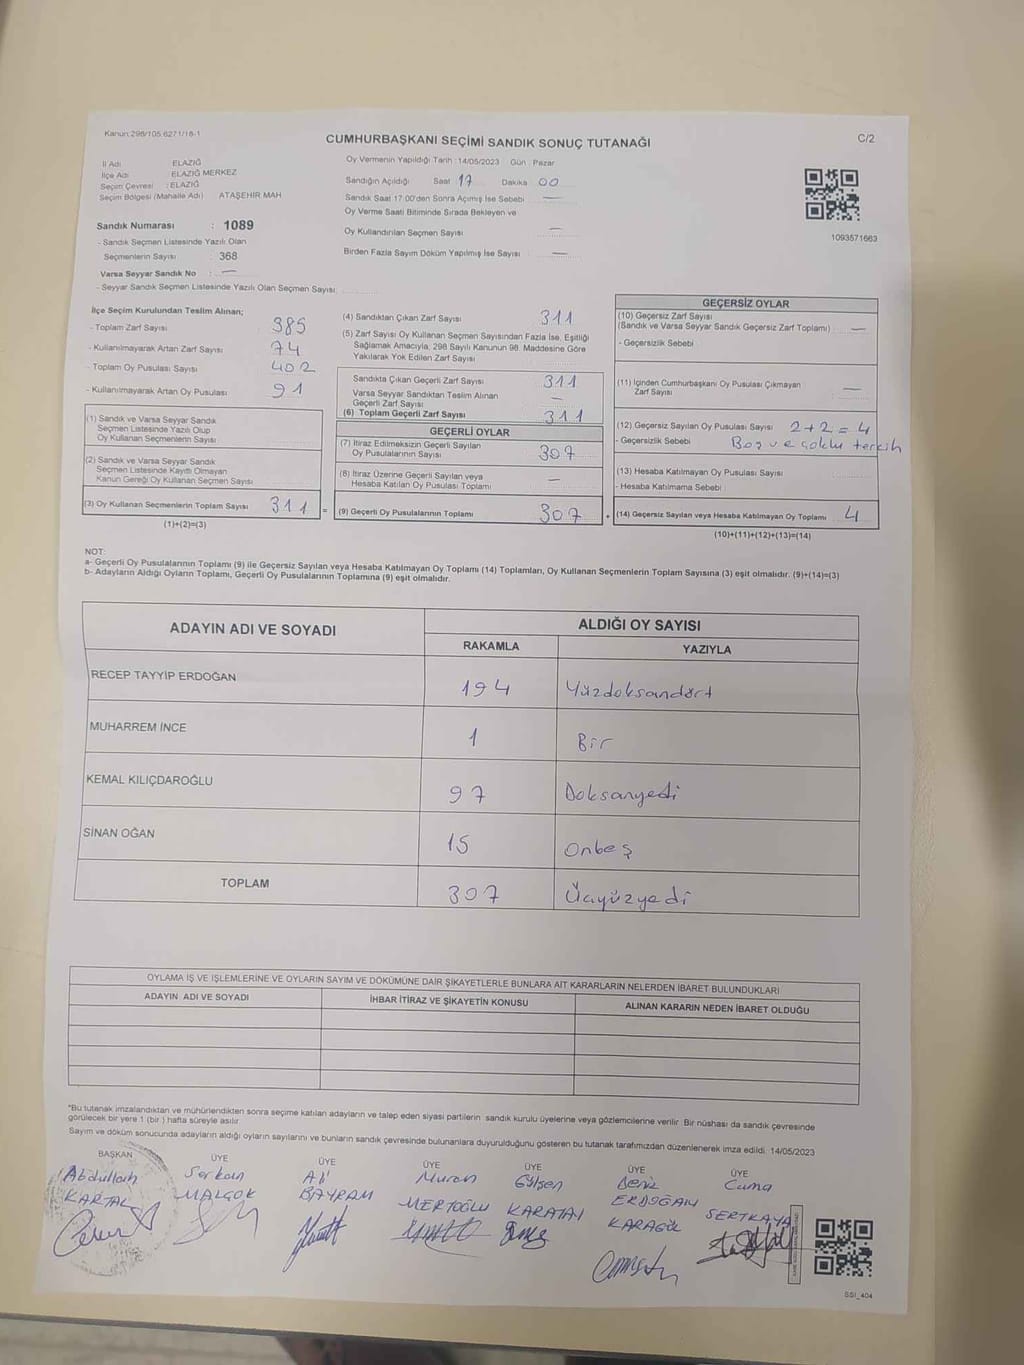 Kanun:298/105.6271/16-1
CUMHURBAŞKANI SEÇİMİ SANDIK SONUÇ TUTANAĞI
C/2
İl Adı : ELAZIĞ
İlçe Adı : ELAZIĞ MERKEZ
Seçim Çevresi : ELAZIĞ
Seçim Bölgesi (Mahalle Adı) ATAŞEHİR MAH
Sandık Numarası : 1089
- Sandık Seçmen Listesinde Yazılı Olan
Seçmenlerin Sayısı : 368
Varsa Seyyar Sandık No : —
- Seyyar Sandık Seçmen Listesinde Yazılı Olan Seçmen Sayısı:
Oy Vermenin Yapıldığı Tarih : 14/05/2023 Gün : Pazar
Sandığın Açıldığı Saat 17 Dakika 00
Sandık Saat 17:00'den Sonra Açılmış İse Sebebi —
Oy Verme Saati Bitiminde Sırada Bekleyen ve
Oy Kullandırılan Seçmen Sayısı —
Birden Fazla Sayım Döküm Yapılmış İse Sayısı —
1093571663
İlçe Seçim Kurulundan Teslim Alınan;
- Toplam Zarf Sayısı 385
- Kullanılmayarak Artan Zarf Sayısı 74
- Toplam Oy Pusulası Sayısı 402
- Kullanılmayarak Artan Oy Pusulası 91
(1) Sandık ve Varsa Seyyar Sandık
Seçmen Listesinde Yazılı Olup
Oy Kullanan Seçmenlerin Sayısı
(2) Sandık ve Varsa Seyyar Sandık
Seçmen Listesinde Kayıtlı Olmayan
Kanun Gereği Oy Kullanan Seçmen Sayısı
(3) Oy Kullanan Seçmenlerin Toplam Sayısı 311 =
(1)+(2)=(3)
(4) Sandıktan Çıkan Zarf Sayısı 311
(5) Zarf Sayısı Oy Kullanan Seçmen Sayısından Fazla İse, Eşitliği
Sağlamak Amacıyla, 298 Sayılı Kanunun 98. Maddesine Göre
Yakılarak Yok Edilen Zarf Sayısı
Sandıkta Çıkan Geçerli Zarf Sayısı 311
Varsa Seyyar Sandıktan Teslim Alınan
Geçerli Zarf Sayısı —
(6) Toplam Geçerli Zarf Sayısı 311
GEÇERLİ OYLAR
(7) İtiraz Edilmeksizin Geçerli Sayılan
Oy Pusulalarının Sayısı 307
(8) İtiraz Üzerine Geçerli Sayılan veya
Hesaba Katılan Oy Pusulası Toplamı —
(9) Geçerli Oy Pusulalarının Toplamı 307 +
GEÇERSİZ OYLAR
(10) Geçersiz Zarf Sayısı
(Sandık ve Varsa Seyyar Sandık Geçersiz Zarf Toplamı) —
- Geçersizlik Sebebi :
(11) İçinden Cumhurbaşkanı Oy Pusulası Çıkmayan
Zarf Sayısı —
(12) Geçersiz Sayılan Oy Pusulası Sayısı 2+2=4
- Geçersizlik Sebebi : Boş ve çoklu tercih
(13) Hesaba Katılmayan Oy Pusulası Sayısı
- Hesaba Katılmama Sebebi :
(14) Geçersiz Sayılan veya Hesaba Katılmayan Oy Toplamı 4
(10)+(11)+(12)+(13)=(14)
NOT:
a- Geçerli Oy Pusulalarının Toplamı (9) ile Geçersiz Sayılan veya Hesaba Katılmayan Oy Toplamı (14) Toplamları, Oy Kullanan Seçmenlerin Toplam Sayısına (3) eşit olmalıdır. (9)+(14)=(3)
b- Adayların Aldığı Oyların Toplamı, Geçerli Oy Pusulalarının Toplamına (9) eşit olmalıdır.
ADAYIN ADI VE SOYADI
ALDIĞI OY SAYISI
RAKAMLA YAZIYLA
RECEP TAYYİP ERDOĞAN 194 Yüzdoksandört
MUHARREM İNCE 1 Bir
KEMAL KILIÇDAROĞLU 97 Doksanyedi
SİNAN OĞAN 15 Onbeş
TOPLAM 307 Üçyüzyedi
OYLAMA İŞ VE İŞLEMLERİNE VE OYLARIN SAYIM VE DÖKÜMÜNE DAİR ŞİKAYETLERLE BUNLARA AİT KARARLARIN NELERDEN İBARET BULUNDUKLARI
ADAYIN ADI VE SOYADI İHBAR İTİRAZ VE ŞİKAYETİN KONUSU ALINAN KARARIN NEDEN İBARET OLDUĞU
*Bu tutanak imzalandıktan ve mühürlendikten sonra seçime katılan adayların ve talep eden siyasi partilerin sandık kurulu üyelerine veya gözlemcilerine verilir. Bir nüshası da sandık çevresinde
görülecek bir yere 1 (bir ) hafta süreyle asılır.
Sayım ve döküm sonucunda adayların aldığı oyların sayılarını ve bunların sandık çevresinde bulunanlara duyurulduğunu gösteren bu tutanak tarafımızdan düzenlenerek imza edildi. 14/05/2023
BAŞKAN ÜYE ÜYE ÜYE ÜYE ÜYE ÜYE
Abdullah Serkan Ali Muran Gülşen Deniz Cuma
KARTAL MALÇOK BAYRAM MERTOĞLU KARATAY ERDOĞAN SERTKAYA
KARAGÜL
SSI_404